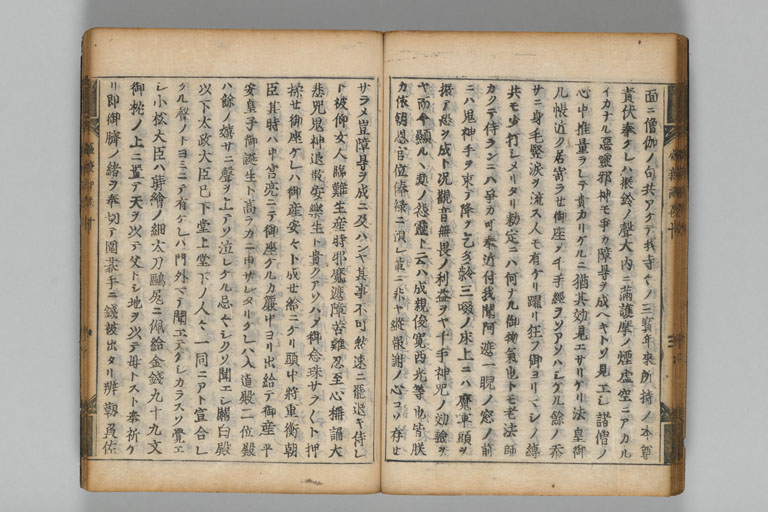 面ニ僧伽ノ句共アケテ我寺々ノ三寳年來所持ノ本尊
責伏奉クレハ振鈴ノ聲大内ニ滿護摩ノ煙虚空ニアカル
イカナル惡靈邪神モ爭カ障㝵ヲ成ヘキトソ見エシ諸僧ノ
心中推量ラレテ貴カリケルニ猶其効見エサリケリ法皇御
几帳近ク居寄ラせ御座テ千手經ヲソアソハシケル餘ノ忝
サニ身毛竪淚ヲ流ス人モ有ケリ躍リ狂フ御ヨリマシノ縛
共モ少打シメリタリ勅定ニハ何ナル御物氣也トモ老法師
カクテ侍ランニハ爭カ可奉近付我聞阿遮一睨ノ窓ノ前
ニハ鬼神手ヲ束テ降ヲ乞多齡三啜ノ床上ニハ魔軍頭ヲ
振テ恐ヲ成ト况觀音無畏ノ利益ヲヤ千手神咒ノ効驗ヲ
ヤ而今顯ルヽ怨靈ト云ハ成親俊寛西光等也皆朕
カ依朝恩官位俸祿ニ浴シ輩ニ非ヤ縱報謝ノ心コソ存せ
サラメ豈障㝵ヲ成ニ及ハンヤ其事不可然速ニ罷退キ侍レ
ト被仰女人臨難生産時邪魔遮障苦難忍至心稱誦大
悲咒鬼神退散安樂生ト貴クアソハシ御念珠サラ〱ト押
揉せ御座ケレハ御産安々ト成せ給ニケリ頭中將重衡朝
臣其時ハ中宮亮ニテ御座ケルカ簾中ヨリ出給テ御産平
安皇子御誕生ト高ラカニ申サレタリケレハ入道殿二位殿
ハ餘ノ嬉サニ聲ヲ上テソ泣レケル忌々シクソ聞エシ關白殿
以下太政大臣已下堂上堂下ノ人々一同ニアト宣合レ
ケル聲ノトヨミニテ有ケレハ門外マテ聞エテ カラスソ覺エ
シ小松大臣ハ蒔繪ノ細太刀鴟尾ニ佩給金錢九十九文
御枕ノ上ニ置テ天ヲ以テ父トシ地ヲ以テ母トスト奉祈ケ
リ即御臍ノ緒ヲ奉切テ圍碁手ニ錢被出タリ辨靱負佐